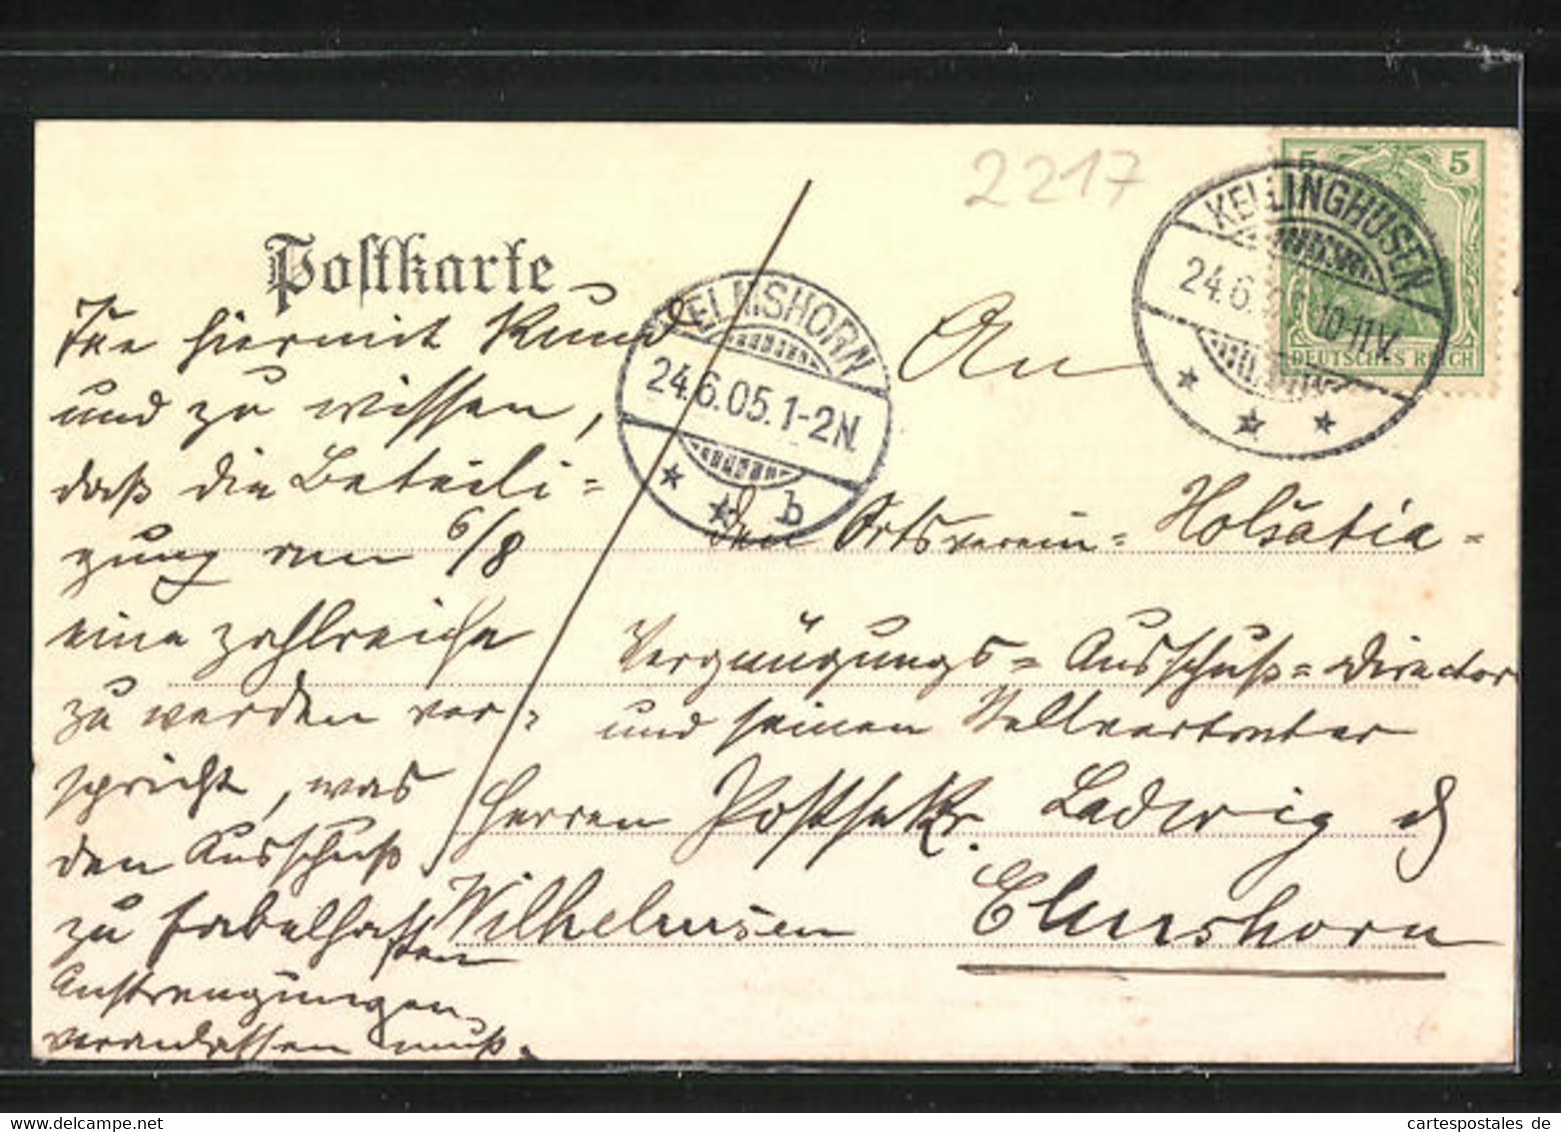 2217
5 5
DEUTSCHES REICH
KELLINGHUSEN
24.6. 10-11V.
Postkarte
ELMSHORN
24.6.05.1-2N.
b
Tue hiermit Kund
und zu wissen,
daß die Beteili=
gung am 6/8
eine zahlreiche
zu werden ver=
spricht, was
den Ausschuß
zu fabelhaften
Anstrengungen
veranlassen muß.
An
den Ortsverein = Holsatia =
Vergnügungs = Ausschuß = Director
und seinen Stellvertreter
Herren Postsekr. Ladwig &
Wilhelmsen Elmshorn
cartespostales de